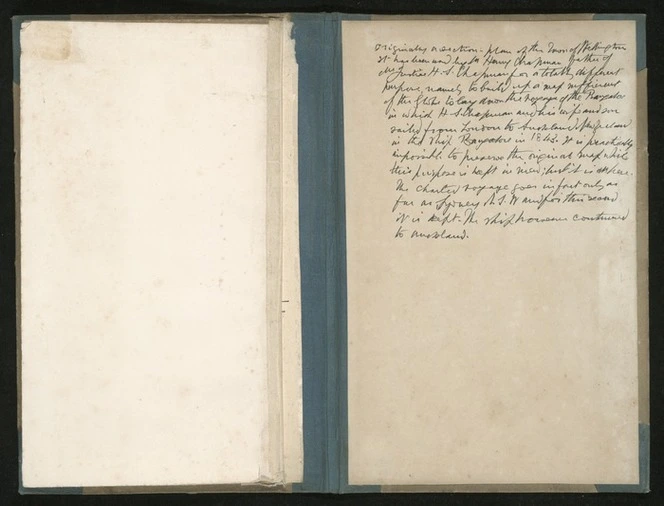 Originally a section-plan of the Town of Wellington
it has been used by Mr Henry Chapman father of
Mr Justice H. S. Chapman for a totally different
purpose, namely to build up a map sufficient
of the Globe to lay down the voyage of the Bangalore
in which H S Chapman and his wife and son
sailed from London to Auckland
in the ship Bangalore in 1843. It is practically
impossible to preserve the original map while
this purpose is kept in view; but it is
The charted voyage goes in fact only as
far as Sydney N. S. W and for this
it is kept. The ship however continued
to Auckland.